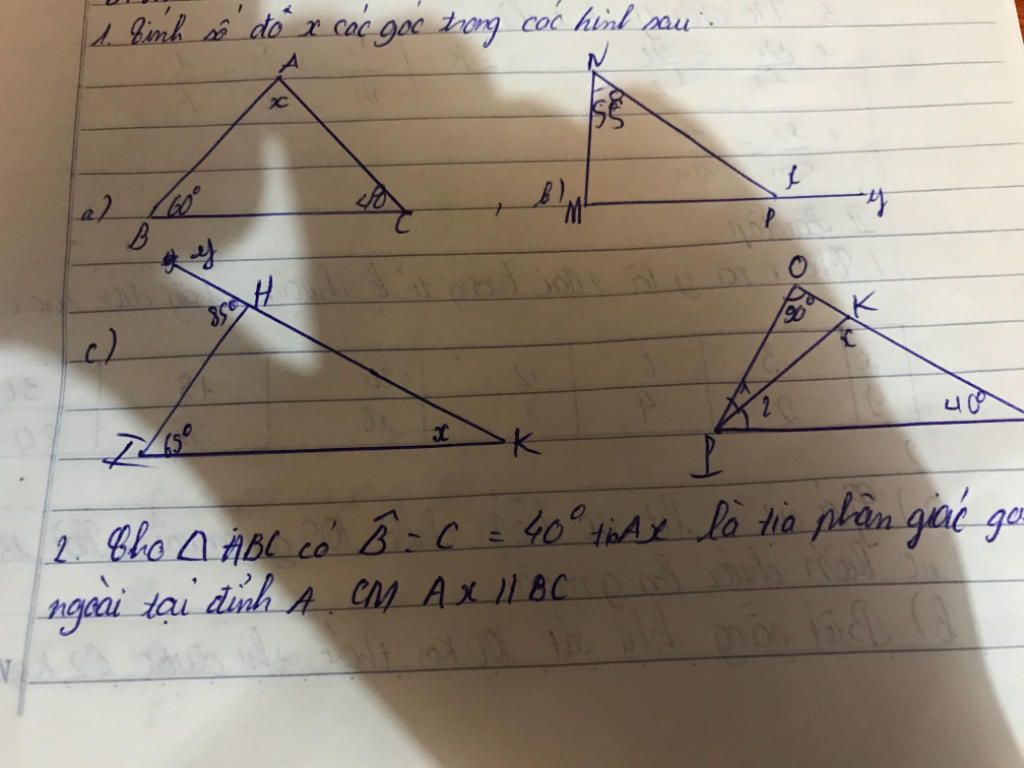 1. Tính số đo x các góc trong các hình sau:
A
x
a)
60°
40
B
C
N
55°
, b)
M
x
P
y
y
H
85°
c)
65°
x
I
K
O
90°
K
x
1
2
40°
P
I
2. Cho △ ABC có B̂ = C = 40° tia Ax là tia phân giác gó
ngoài tại đỉnh A. CM Ax // BC